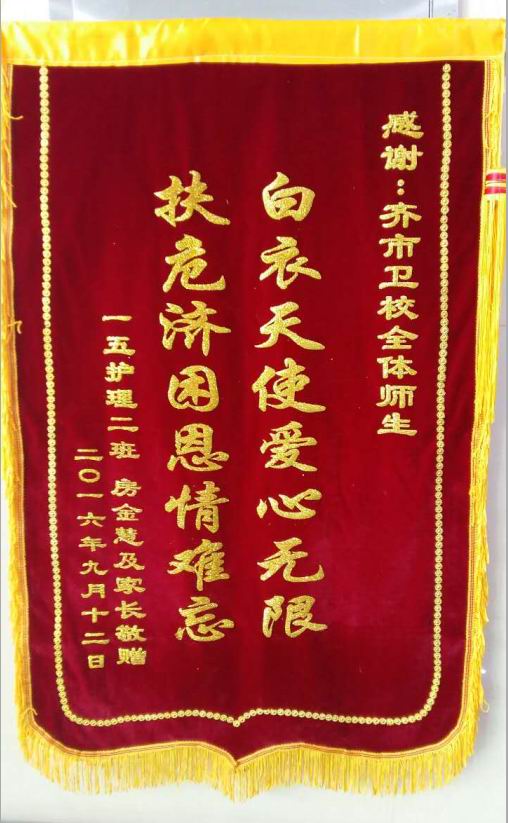 感谢：齐市卫校全体师生
白衣天使爱心无限
扶危济困恩情难忘
一五护理二班 房金慧及家长敬赠
二〇一六年九月十二日